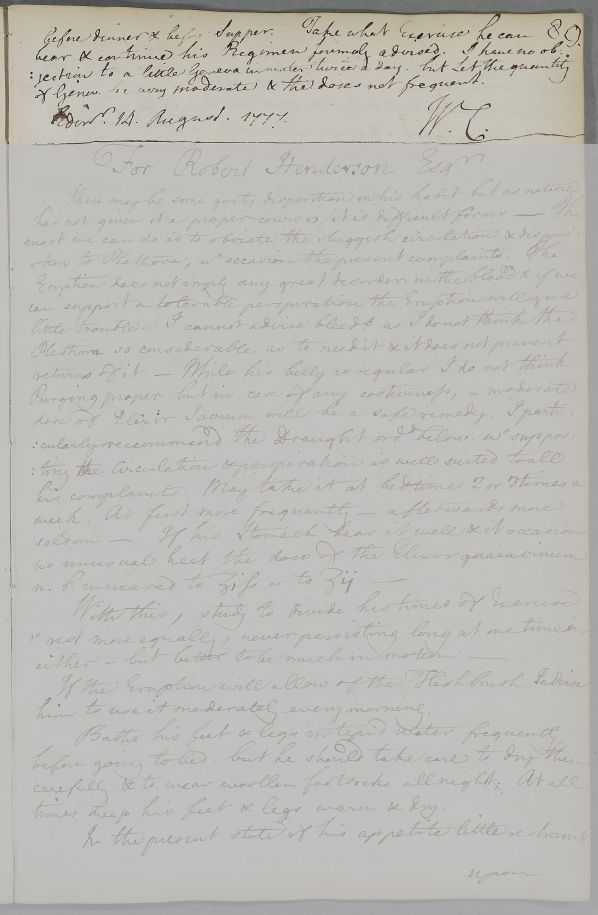 before dinner & before Supper. Take what Exercise he can 89.
bear & continue his Regimen formerly advised. I have no ob:
:jection to a little Geneva in water twice a day. but Let the quantity
of Geneva is very moderate & the doses not frequent.
Edinr. 14. August. 1777. W. C.
For Robert Henderson Esqr
There may be some gouty disposition in his habit but as nature
has not given it a proper course, it is difficult for us — The
most we can do is to obviate the sluggish circulation & disposi:
:tion to Plethora, wc occasion the present complaints. The
Eruption does not imply any great disorder in the blood & if we
can support a tolerable perspiration the Eruption will give
little trouble. I cannot advise bleedg as I do not think the
Plethora so considerable as to need it & it does not prevent
returns of it — While his belly is regular I do not think
Purging proper but in case of any costiveness, a moderate
dose of Elixir Sacrum will be a safe remedy. I parti:
:cularly recommend the Draught ordd below. wc suppor:
:ting the Circulation & perspiration is well suited to all
his complaints. May take it at bedtime 2 or 3 times a
week. At first more frequently — afterwards more
seldom — If his Stomach bear it well & it occasion
no unusual heat the dose of the Elixir guaiacinum
m. b. increased to ʒifs or to ʒij —
With this, study to divide his times of Exercise
& rest more equally, never persisting long at one time in
either — but better to be much in motion —
If the Eruption will allow of the Fleshbrush I advise
him to use it moderately every morning.
Bathe his feet & legs in tepid water frequently
before going to bed. but he should take care to dry them
carefully & to wear woollen footsocks all night. At all
times keep his feet & legs warm & dry.
In the present state of his appetite little restraint
upon